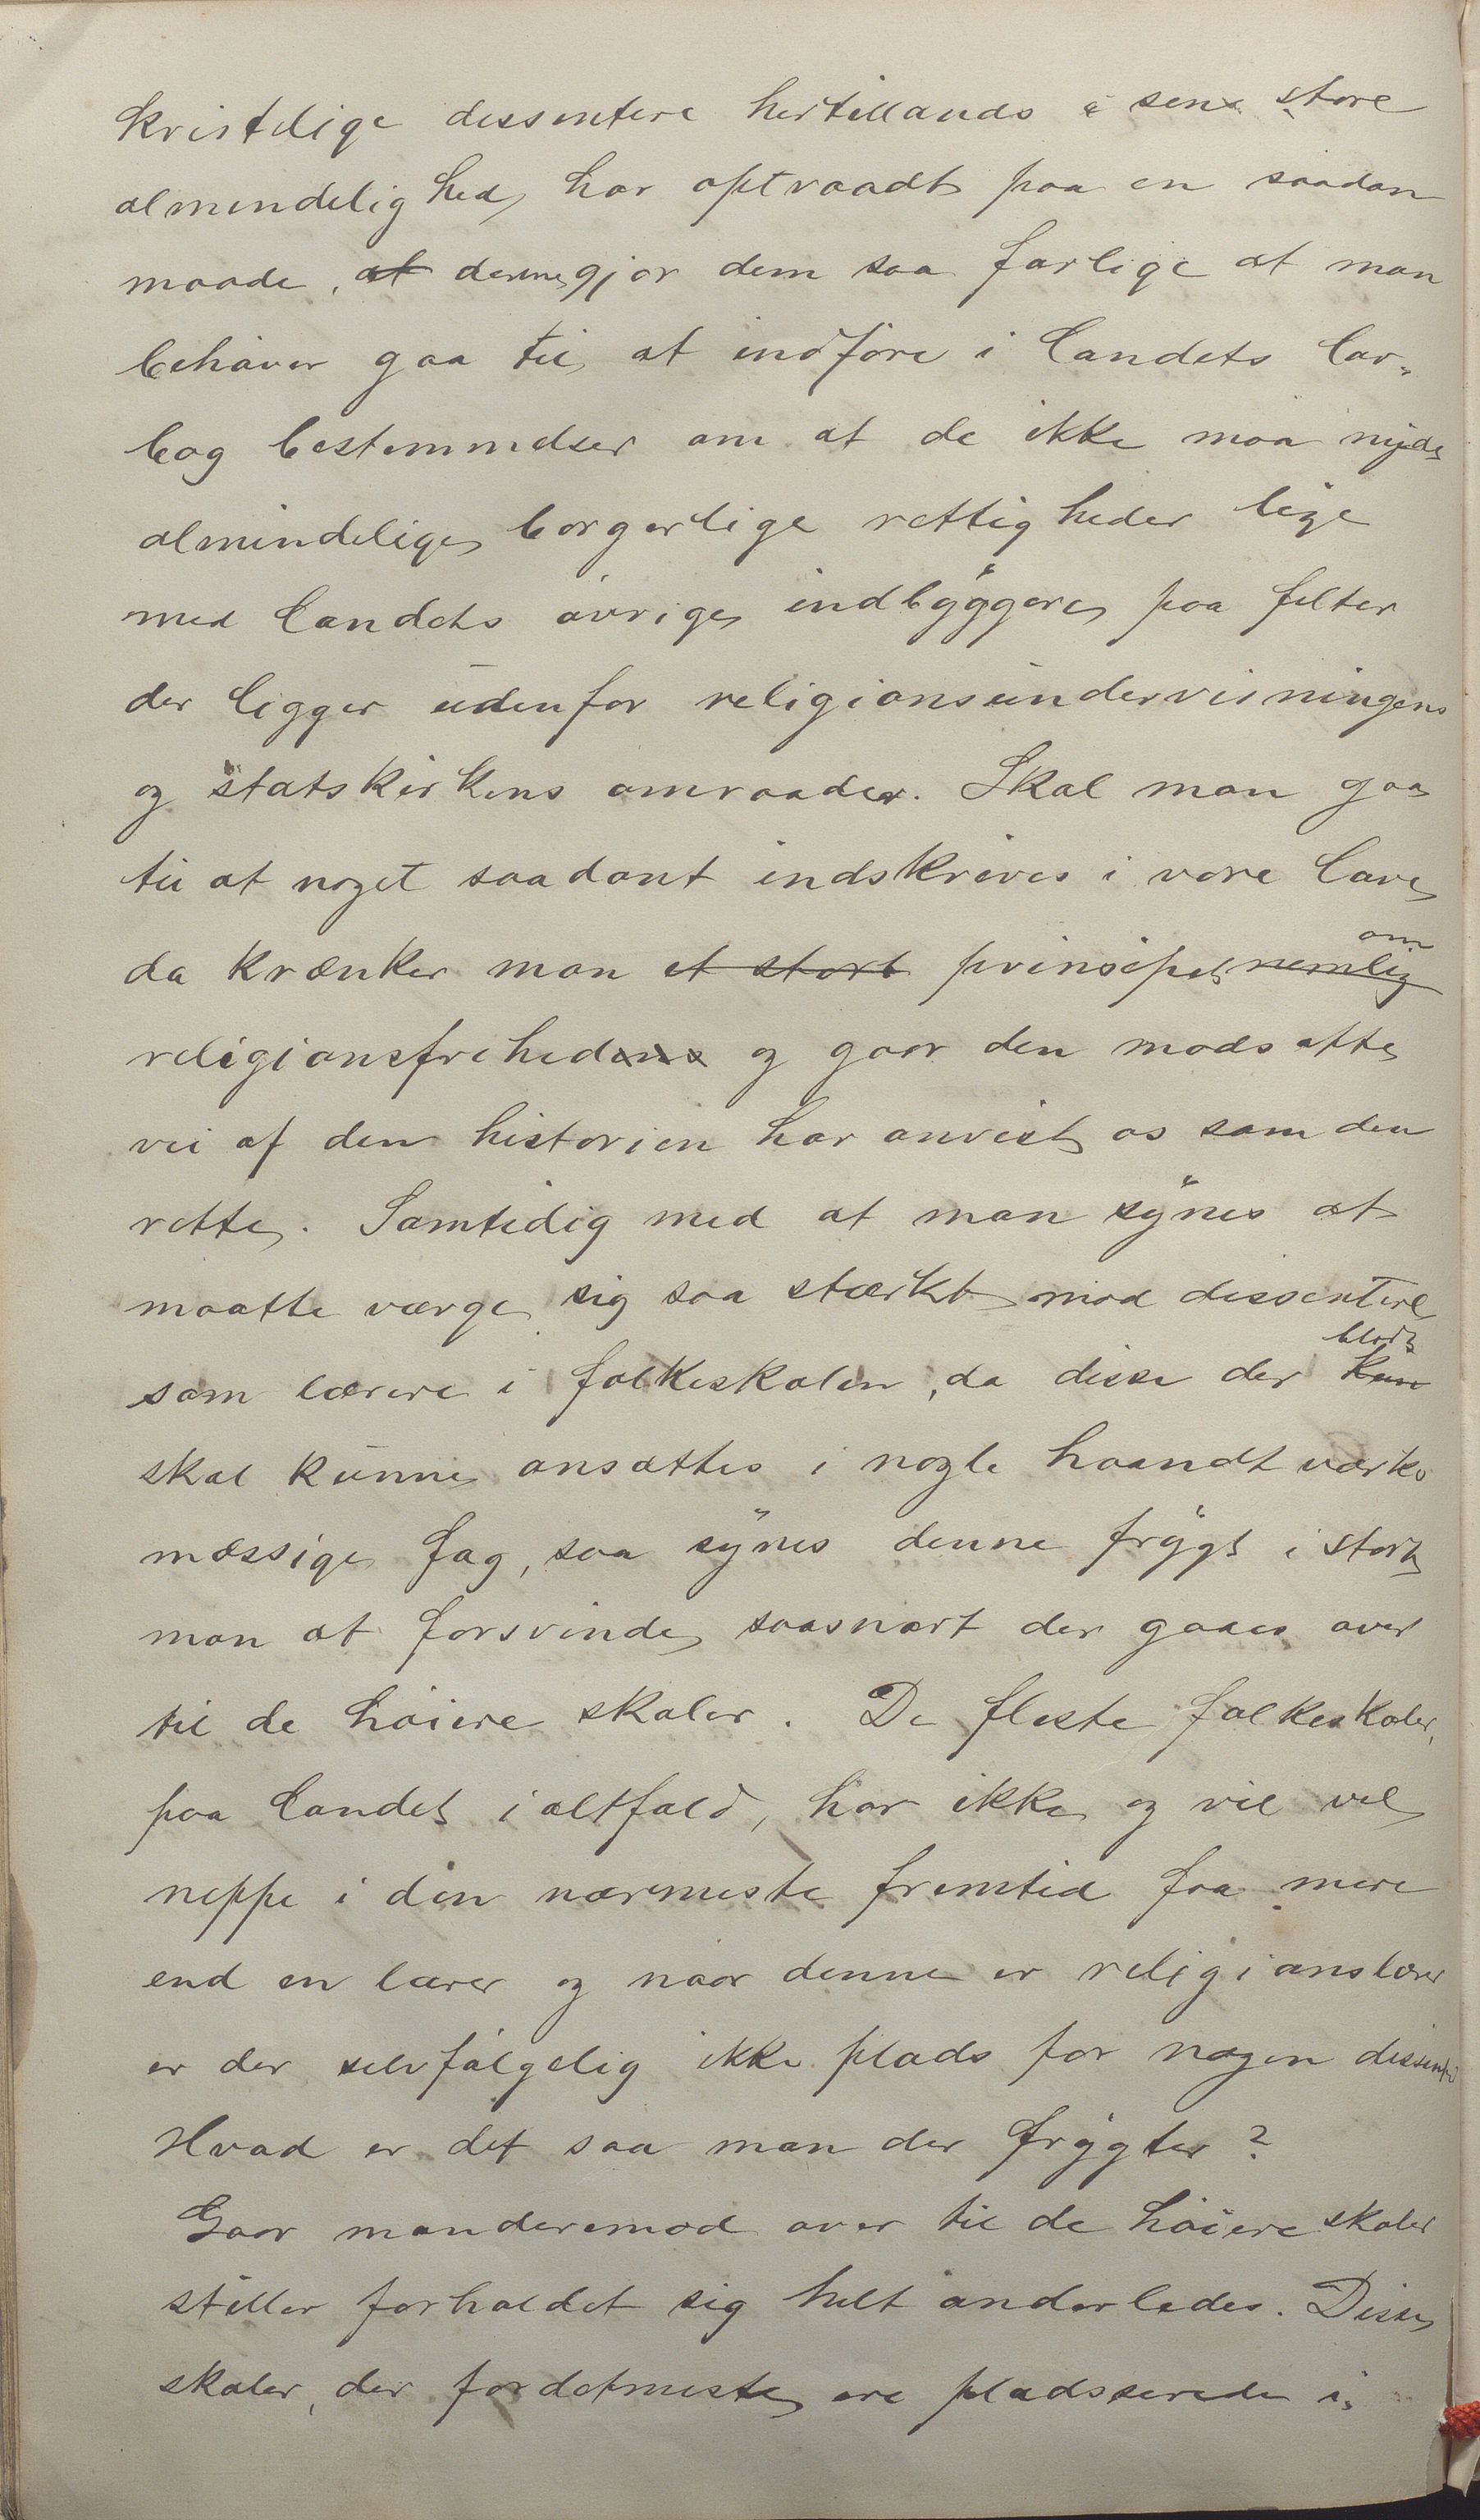 kristelige dissentere hertillands i sin store
almindelighed har optraadt paa en saadan
maade, at denne gjør dem saa farlige at man
behøver gaa til at indføre i landets lov-
bog bestemmelser om at de ikke maa nyde
almindelige borgerlige rettigheder lige
med landets øvrige indbyggere paa felter
der ligger udenfor religionsundervisningens
og statskirkens omraader. Skal man gaa
til at noget saadant indskrives i vore love
da krænker man et stort prinsipet nemlig om
religionsfriheden og gaar den modsatte
vei af den historien har anvist os som den
rette. Samtidig med at man synes at
maatte værge sig saa stærkt mod dissentere
som lærere i folkeskolen, da disse der kun blot
skal kunne ansættes i nogle haandtværks
mæssige fag, saa synes denne frygt i stort
mon at forsvinde saasnart der gaaes over
til de høiere skoler. De fleste folkeskoler,
paa landet ialtfald, har ikke og vil vel
neppe i den nærmeste fremtid faa mere
end en lærer og naar denne er religionslærer
er der selvfølgelig ikke plads for nogen dissenter
Hvad er det saa man der frygter?
Gaar manderemod over til de høiere skoler
stiller forholdet sig helt anderledes. Disse
skoler, der fordetmeste ere pladsserede i